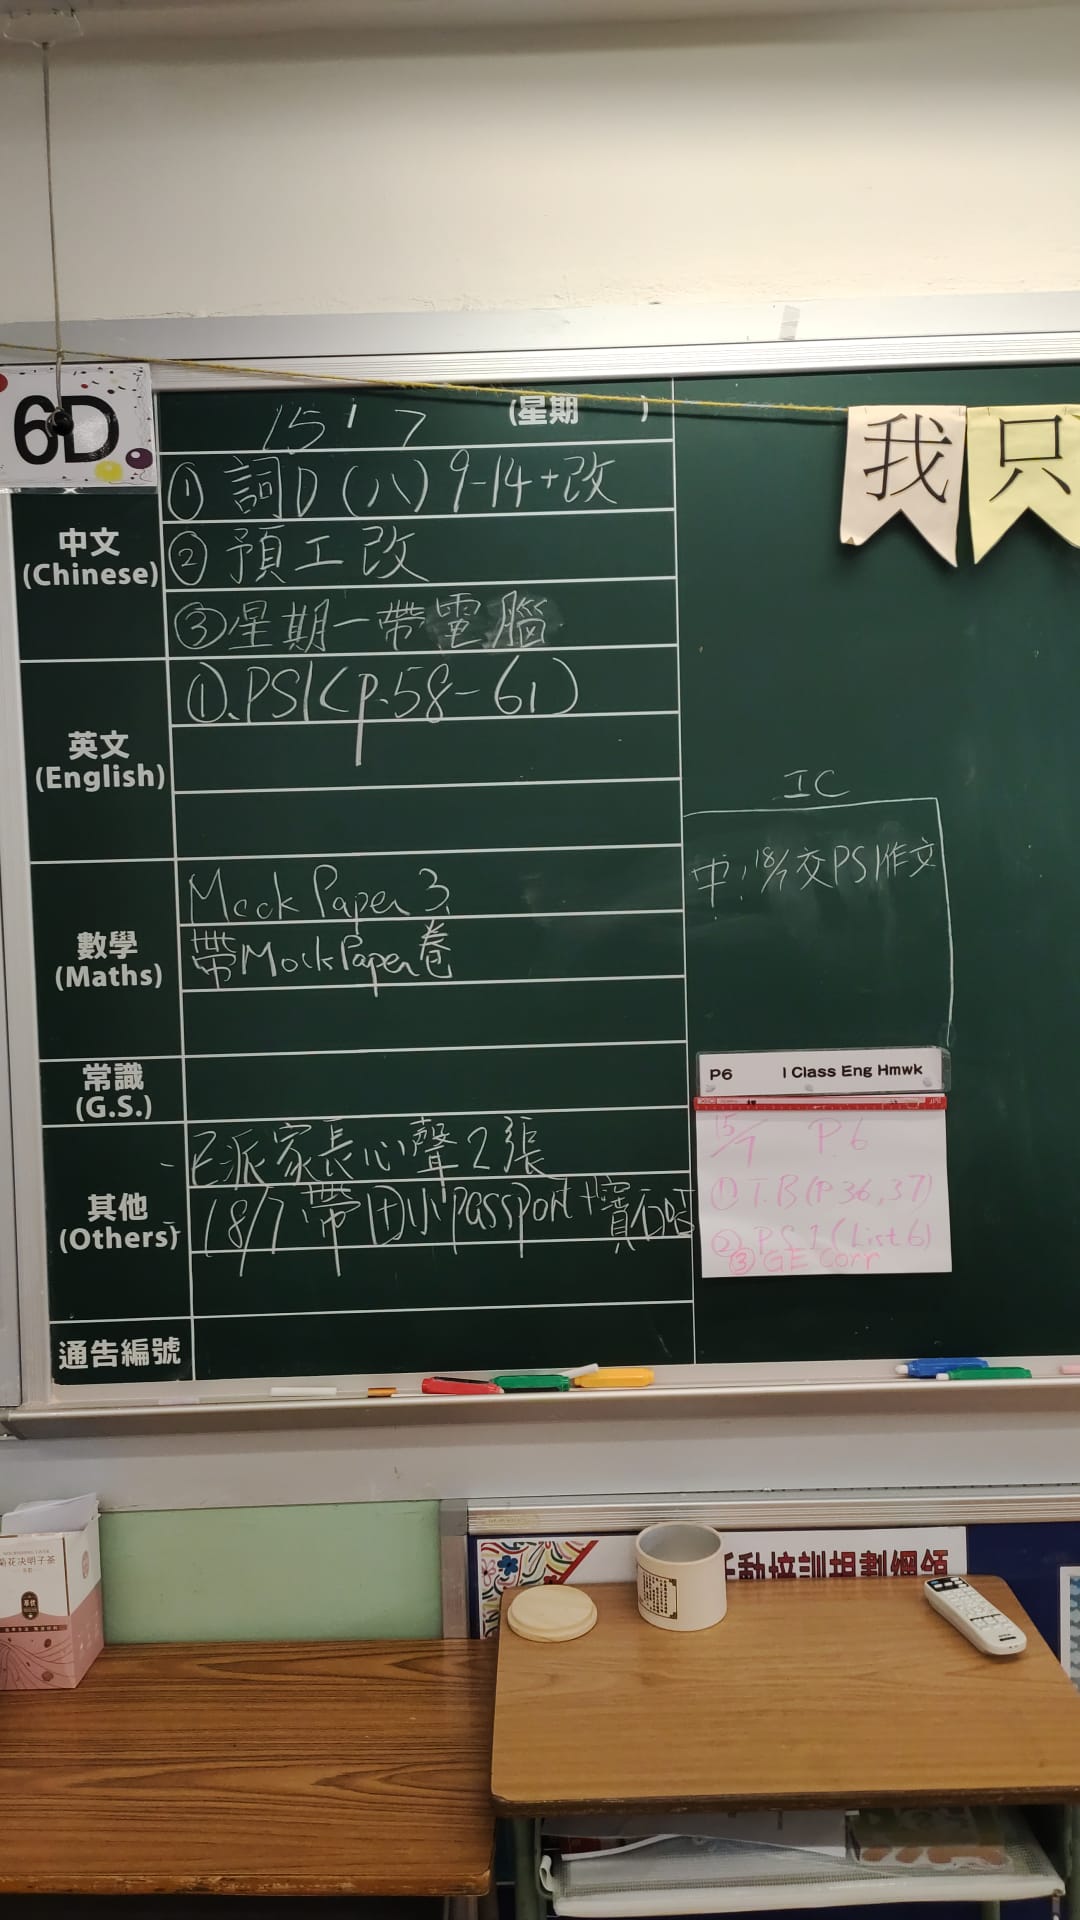 6D
15 / 7 (星期 )
中文
(Chinese)
① 詞D(八) 9-14+改
② 預工改
③ 星期一帶電腦
英文
(English)
①.PS1(p.58-61)
數學
(Maths)
Mock Paper 3
帶Mock Paper卷
常識
(G.S.)
其他
(Others)
已派家長心聲2張
18/7 帶田小passport+寶石
通告編號
我只
IC
中: 18/7交PS1作文
P6 I Class Eng Hmwk
15/7 P.6
① T.B(P.36,37)
② PS1(List 6)
③ GE Corr
菊花決明子茶